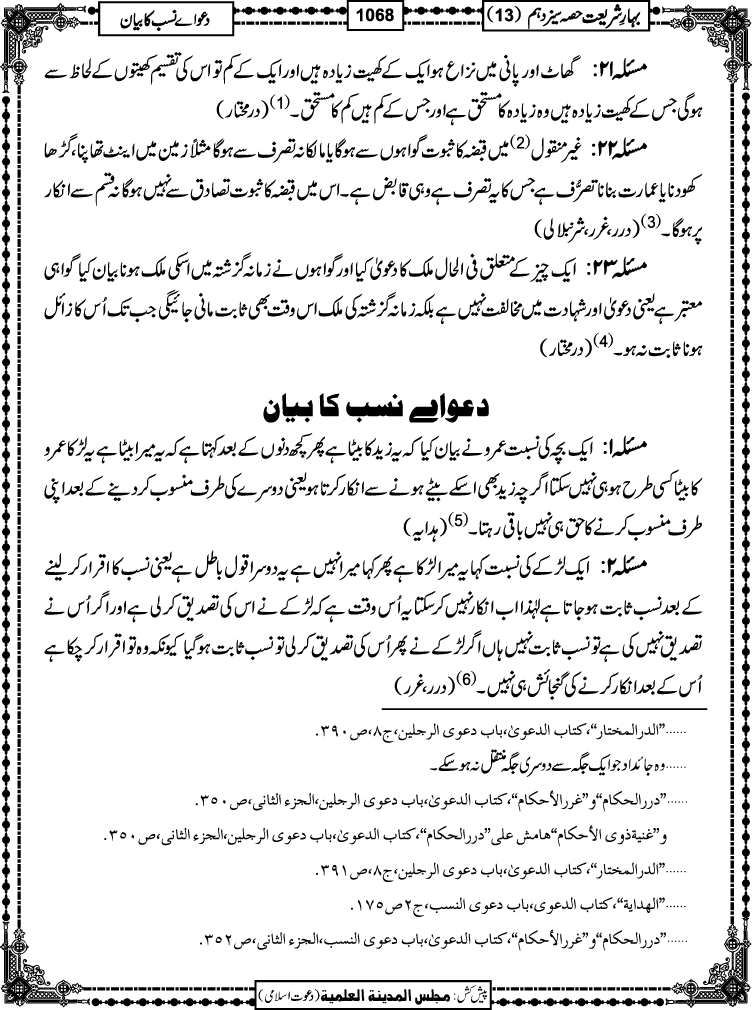 بہارِشریعت حصہ سیزدہم (13)
1068
دعوائے نسب کا بیان
مسئلہ ۲۱: گھاٹ اور پانی میں نزاع ہو ایک کے کھیت زیادہ ہیں اور ایک کے کم تو اس کی تقسیم کھیتوں کے لحاظ سے
ہوگی جس کے کھیت زیادہ ہیں وہ زیادہ کا مستحق ہے اور جس کے کم ہیں کم کا مستحق۔(1) (درمختار)
مسئلہ ۲۲: غیر منقول(2) میں قبضہ کا ثبوت گواہوں سے ہوگا یا مالکانہ تصرف سے ہوگا مثلاً زمین میں اینٹ تھاپنا، گڑھا
کھودنا یا عمارت بنانا تصرُّف ہے جس کا یہ تصرف ہے وہی قابض ہے۔ اس میں قبضہ کا ثبوت تصادق سے نہیں ہوگا نہ قسم سے انکار
پر ہوگا۔(3) (درر، غرر، شرنبلالی)
مسئلہ ۲۳: ایک چیز کے متعلق فی الحال ملک کا دعویٰ کیا اور گواہوں نے زمانہ گزشتہ میں اسکی ملک ہونا بیان کیا گواہی
معتبر ہے یعنی دعویٰ اور شہادت میں مخالفت نہیں ہے بلکہ زمانہ گزشتہ کی ملک اس وقت بھی ثابت مانی جائیگی جب تک اُس کا زائل
ہونا ثابت نہ ہو۔(4) (درمختار)
دعوائے نسب کا بیان
مسئلہ ۱: ایک بچہ کی نسبت عمرو نے بیان کیا کہ یہ زید کا بیٹا ہے پھر کچھ دنوں کے بعد کہتا ہے کہ یہ میرا بیٹا ہے یہ لڑکا عمرو
کا بیٹا کسی طرح ہو ہی نہیں سکتا اگرچہ زید بھی اسکے بیٹے ہونے سے انکار کرتا ہو یعنی دوسرے کی طرف منسوب کر دینے کے بعد اپنی
طرف منسوب کرنے کا حق ہی نہیں باقی رہتا۔(5) (ہدایہ)
مسئلہ ۲: ایک لڑکے کی نسبت کہا یہ میرا لڑکا ہے پھر کہا میرا نہیں ہے یہ دوسرا قول باطل ہے یعنی نسب کا اقرار کر لینے
کے بعد نسب ثابت ہو جاتا ہے لہٰذا اب انکار نہیں کرسکتا یہ اُس وقت ہے کہ لڑکے نے اس کی تصدیق کر لی ہے اور اگر اُس نے
تصدیق نہیں کی ہے تو نسب ثابت نہیں ہاں اگر لڑکے نے پھر اُس کی تصدیق کر لی تو نسب ثابت ہوگیا کیونکہ وہ تو اقرار کر چکا ہے
اُس کے بعد انکار کرنے کی گنجائش ہی نہیں۔(6) (درر، غرر)
......”الدرالمختار“، کتاب الدعویٰ، باب دعوی الرجلین، ج۸، ص۳۹۰.
......وہ جائداد جو ایک جگہ سے دوسری جگہ منتقل نہ ہو سکے۔
......”دررالحکام“ و ”غررالأحکام“، کتاب الدعویٰ، باب دعوی الرجلین، الجزء الثانی، ص۳۵۰.
و ”غنیة ذوی الأحکام“ ھامش علی ”دررالحکام“، کتاب الدعویٰ، باب دعوی الرجلین، الجزء الثانی، ص۳۵۰.
......”الدرالمختار“، کتاب الدعویٰ، باب دعوی الرجلین، ج۸، ص۳۹۱.
......”الھدایة“، کتاب الدعوی، باب دعوی النسب، ج۲ص۱۷۵.
......”دررالحکام“ و ”غررالأحکام“، کتاب الدعویٰ، باب دعوی النسب، الجزء الثانی، ص۳۵۲.
پیش کش: مجلس المدینة العلمیة (دعوت اسلامی)